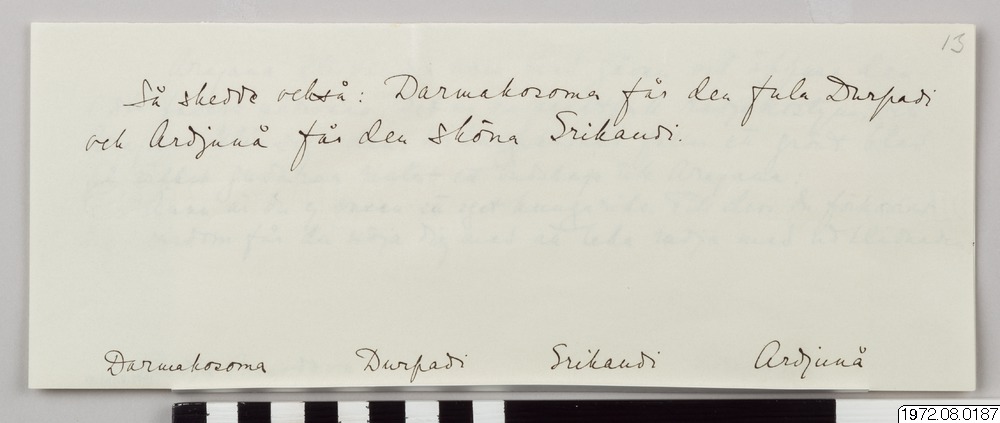 13
Så skedde också: Darmakosoma får den fula Durpadi
och Ardjunå får den sköna Srikandi.
Darmakosoma Durpadi Srikandi Ardjunå
1972.08.0187